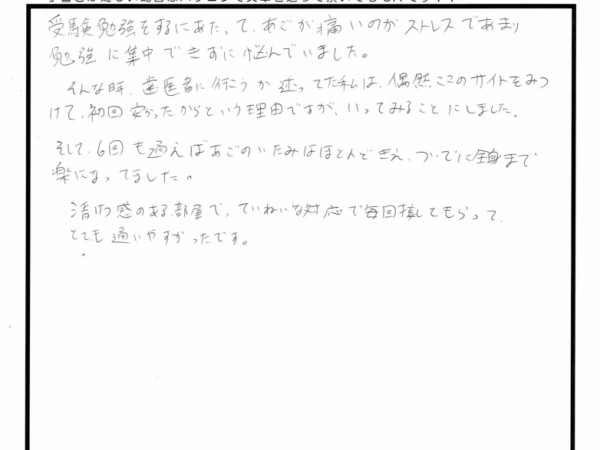 受験勉強をするにあたって、あごが痛いのがストレスであまり
勉強に集中できずに悩んでいました。
そんな時、歯医者に行こうか迷ってた私は、偶然ここのサイトをみつ
けて、初回安かったからという理由ですが、いってみることにしました。
そして、6回も通えばあごのいたみはほとんどきえ、ついでに全身まで
楽になってました。
清けつ感のある部屋で、ていねいな対応で毎回接してもらって、
とても通いやすかったです。